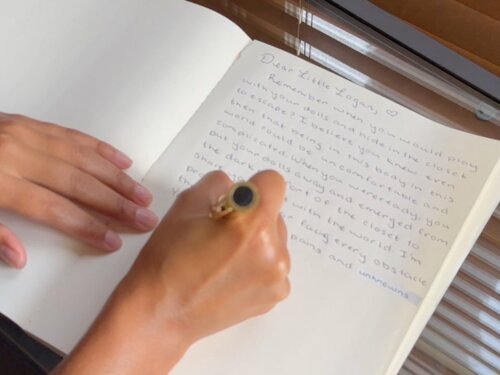 Dear Little Logan, ♡
Remember when you would play
with your dolls and hide in the closet
to escape? I believe you knew even
then that being in this body in this
world could be uncomfortable and
complicated. When you were ready, you
put your dolls away and emerged from
the dark of the closet to
share with the world. I'm
facing every obstacle
and unknowns